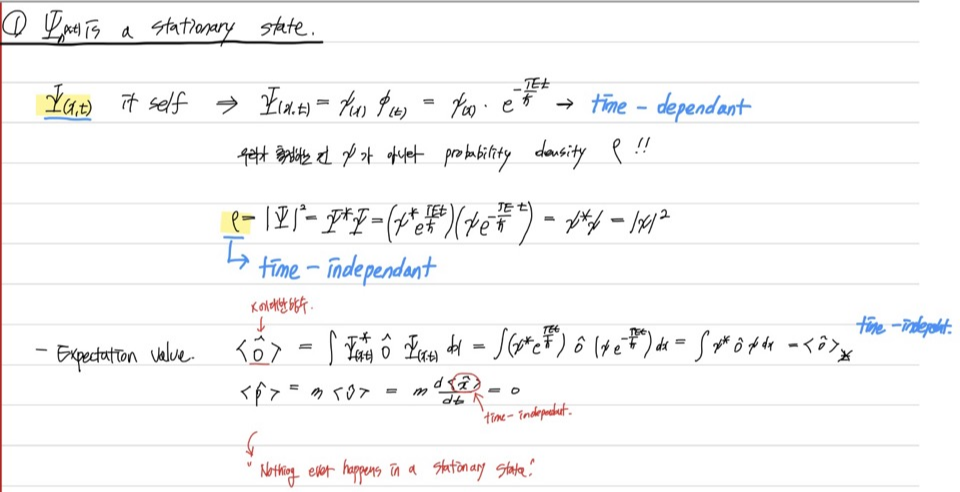 ① Ψₙ(x,t) is a stationary state.
Ψ(x,t) it self ⇒ Ψ(x,t) = ψ(x) ϕ(t) = ψ(x) · e^{-iEt/ħ} → time - dependant
ψ가 아니라 probability density ρ !!
ρ = |Ψ|² = Ψ*Ψ = (ψ* e^{iEt/ħ})(ψ e^{-iEt/ħ}) = ψ*ψ = |ψ|²
↳ time - independant
x에 대한 함수.
- Expectation value. <ô> = ∫ Ψ*(x,t) ô Ψ(x,t) dx = ∫(ψ* e^{iEt/ħ}) ô (ψ e^{-iEt/ħ}) dx = ∫ ψ* ô ψ dx = <ô>
<p̂> = m <v̂> = m d<x̂>/dt = 0
time - independant.
"Nothing ever happens in a stationary state."